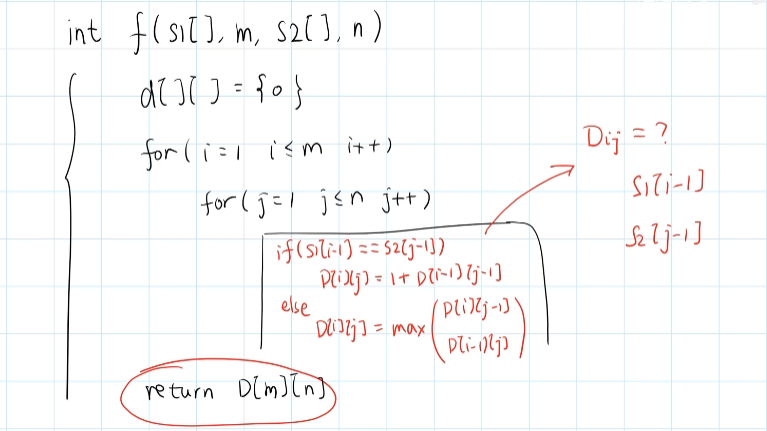 int f(s1[], m, s2[], n)
d[][] = {0}
for(i=1 i≤m i++)
for(j=1 j≤n j++)
if(s1[i-1]==s2[j-1])
D[i][j] = 1+D[i-1][j-1]
else
D[i][j] = max(D[i][j-1]
D[i-1][j])
return D[m][n]
Dij = ?
s1[i-1]
s2[j-1]